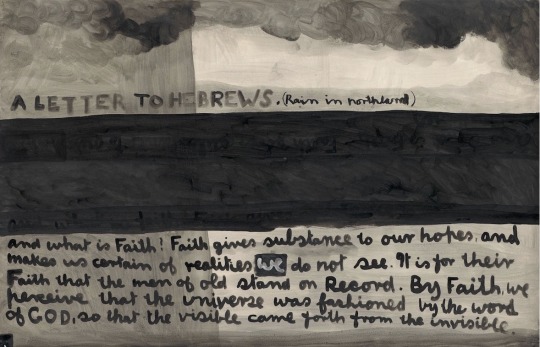 A LETTER TO HEBREWS. (Rain in northland)
and what is Faith! Faith gives substance to our hopes. and
makes us certain of realities we do not see. It is for their
Faith that the men of old stand on Record. By Faith, we
perceive that the universe was fashioned by the word
of GOD, so that the visible came forth from the invisible.